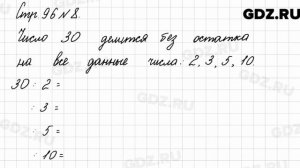 GDZ.RU
Стр 96 № 8.
Число 30 делится без остатка
на все данные числа: 2, 3, 5, 10
30 : 2 =
: 3 =
: 5 =
: 10 =
GDZ.RU